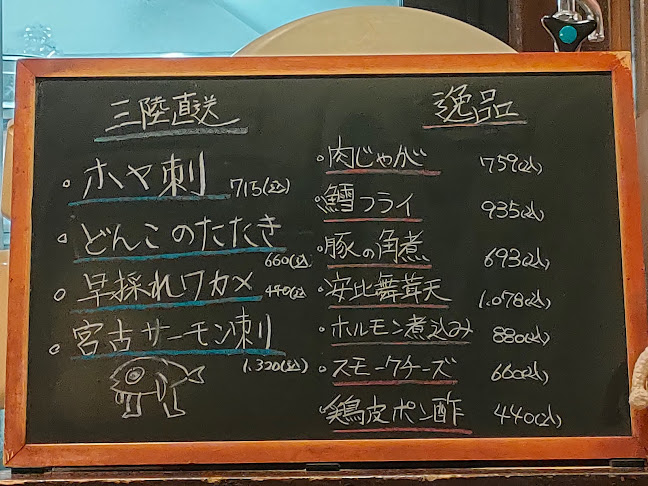 三陸直送
・ホヤ刺 715(込)
・どんこのたたき 660(込)
・早採れワカメ 440(込
・宮古サーモン刺 1.320(込)
逸品
・肉じゃが 759(込)
・鱈フライ 935(込)
・豚の角煮 693(込)
・安比舞茸天 1.078(込)
・ホルモン煮込み 880(込)
・スモークチーズ 660(込)
・鶏皮ポン酢 440(込)